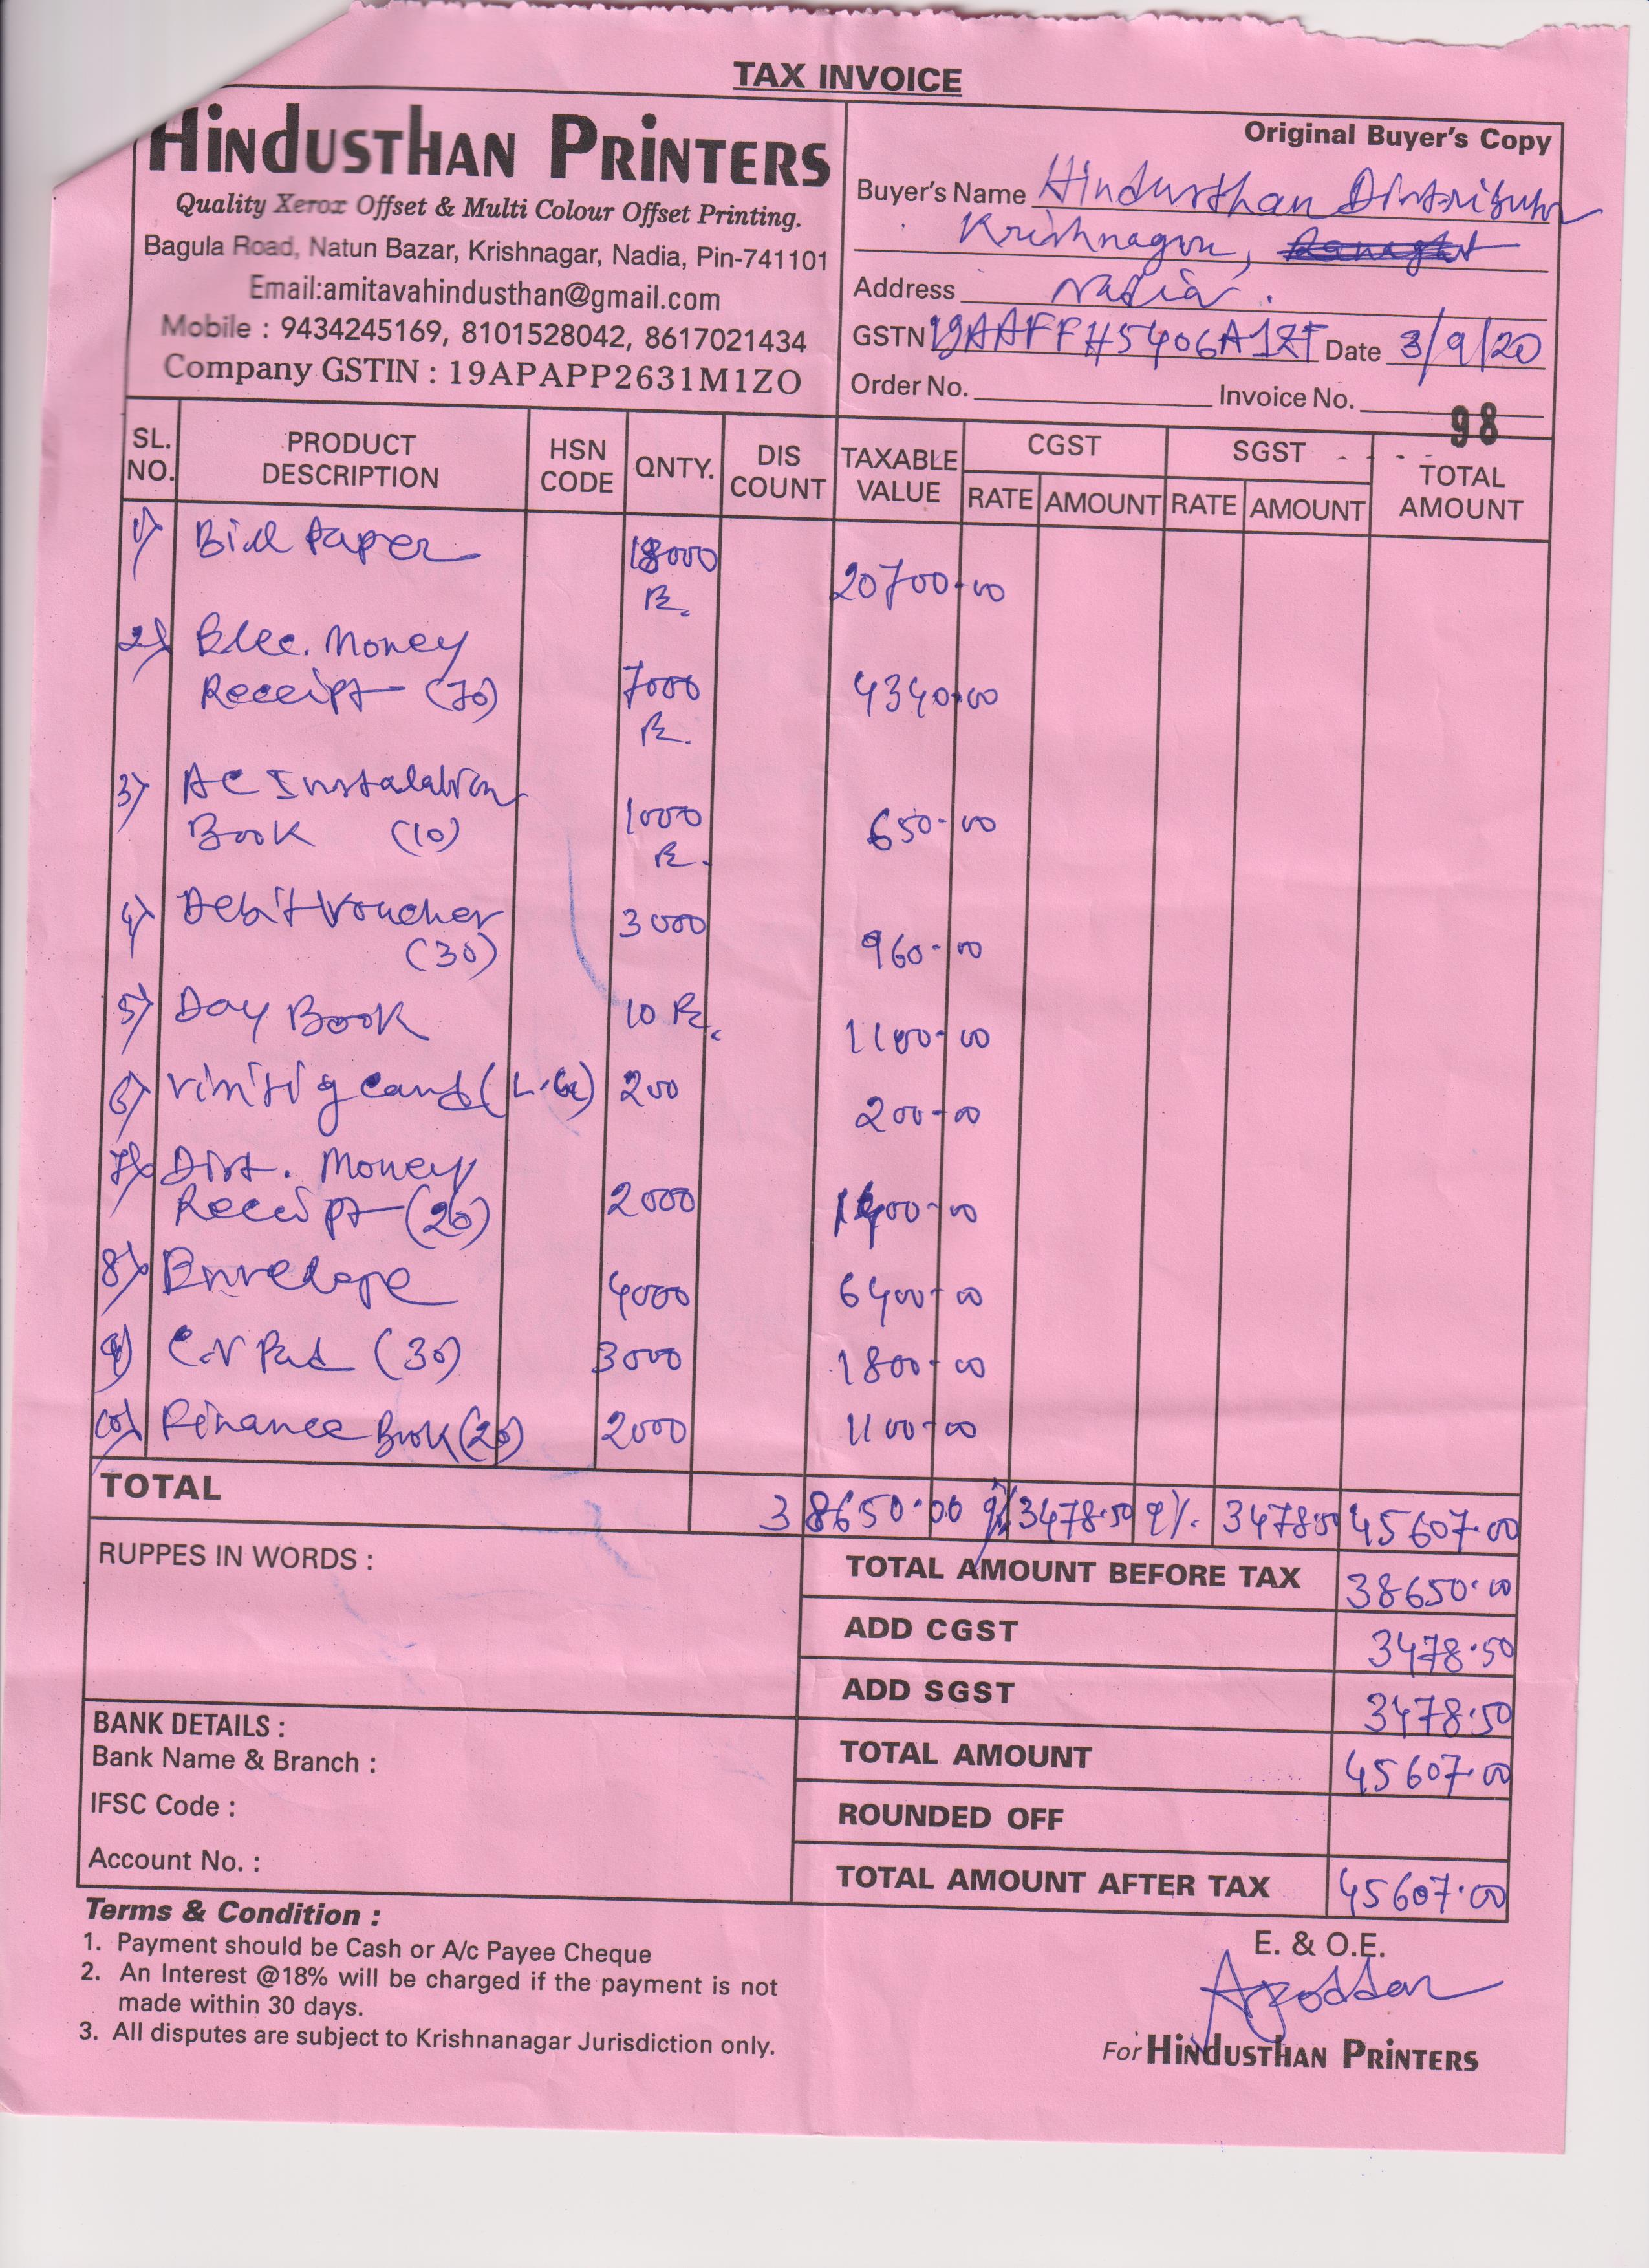 TAX INVOICE
HINDUSTHAN PRINTERS
Quality Xerox Offset & Multi Colour Offset Printing.
Bagula Road, Natun Bazar, Krishnagar, Nadia, Pin-741101
Email:amitavahindusthan@gmail.com
Mobile : 9434245169, 8101528042, 8617021434
Company GSTIN : 19APAPP2631M1ZO
Original Buyer's Copy
Buyer's Name Hindusthan Distributor
Krishnagar,
Address Nadia.
GSTN 19AAFFH5406A1ZF Date 3/9/20
Order No. Invoice No. 98
SL. NO. PRODUCT DESCRIPTION HSN CODE QNTY. DIS COUNT TAXABLE VALUE CGST RATE AMOUNT SGST RATE AMOUNT TOTAL AMOUNT
1) Bill Paper 18000 20700-00
2) Elec. Money
Receipt (70) 7000 4340-00
3) AC Instalation
Book (10) 1000 650-00
4) Debit Voucher
(30) 3000 960-00
5) Day Book 10 1100-00
6) card 200 200-00
7) Dist. Money
Receipt (20) 2000 1400-00
8) Envelope 4000 6400-00
9) C.N Pad (30) 3000 1800-00
10) Finance Book (20) 2000 1100-00
TOTAL 38650.00 9% 3478.50 9%. 3478.50 45607.00
RUPPES IN WORDS :
TOTAL AMOUNT BEFORE TAX 38650.00
ADD CGST 3478.50
ADD SGST 3478.50
BANK DETAILS :
Bank Name & Branch :
IFSC Code :
Account No. :
TOTAL AMOUNT 45607.00
ROUNDED OFF
TOTAL AMOUNT AFTER TAX 45607.00
Terms & Condition :
1. Payment should be Cash or A/c Payee Cheque
2. An Interest @18% will be charged if the payment is not
made within 30 days.
3. All disputes are subject to Krishnanagar Jurisdiction only.
E. & O.E.
For HINDUSTHAN PRINTERS